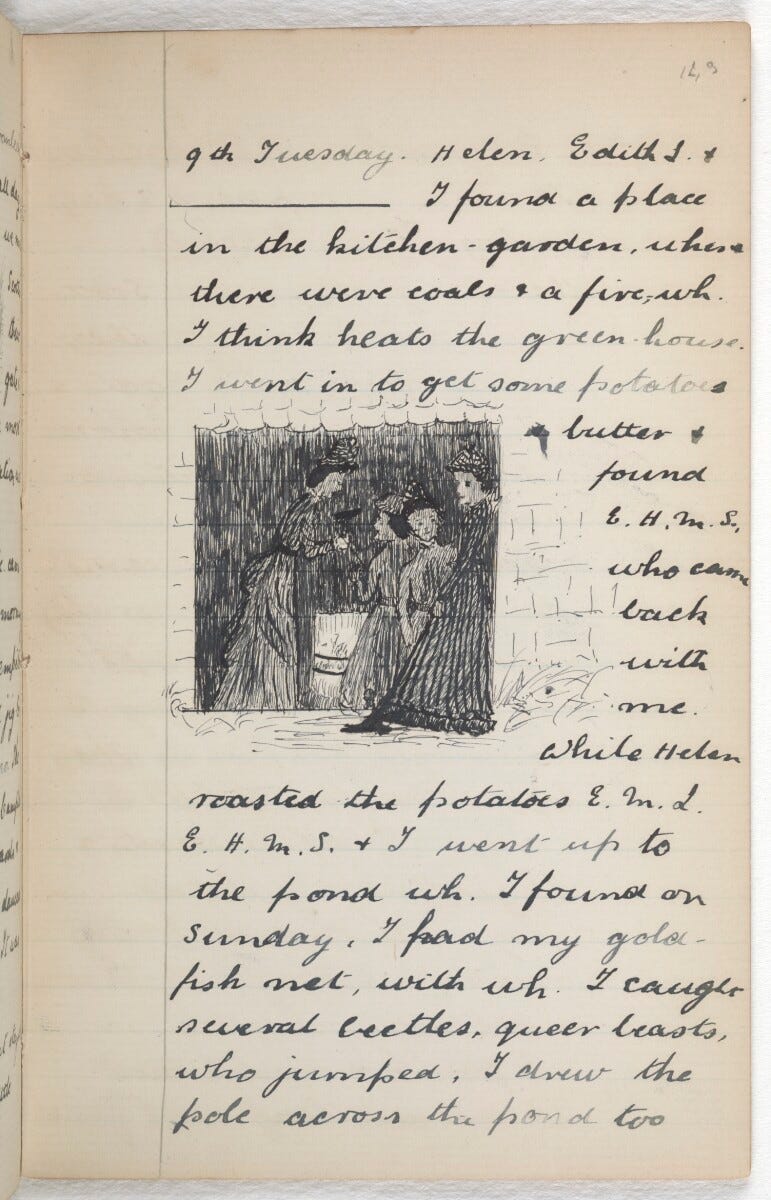 9th Tuesday. Helen, Edith I. &
I found a place
in the kitchen-garden, where
there were coals & a fire, wh.
I think heats the green-house.
I went in to get some potatoes
& butter &
found
E. H. M. S.,
who came
back
with
me.
While Helen
roasted the potatoes E. M. I.
E. H. M. S. & I went up to
the pond wh. I found on
Sunday. I had my gold-
fish net, with wh. I caught
several beetles, queer beasts,
who jumped. I drew the
pole across the pond too